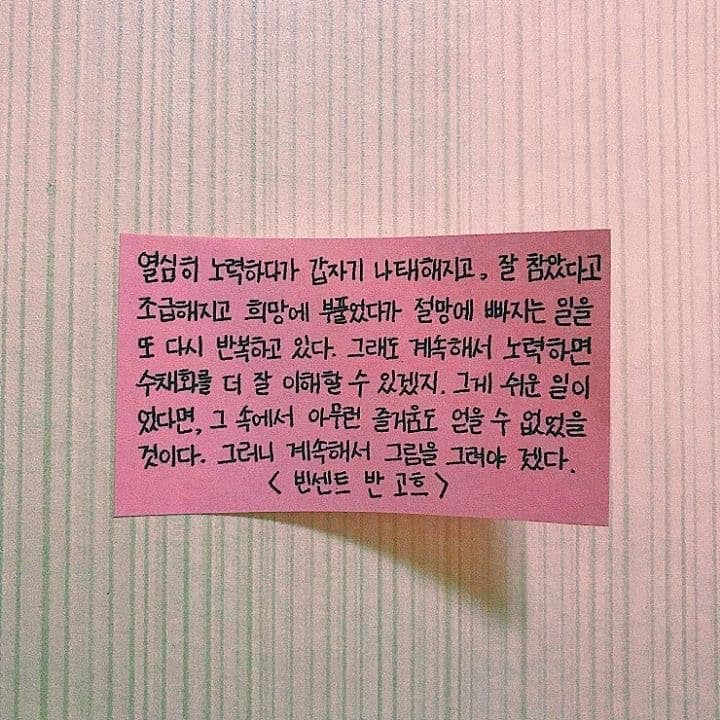 열심히 노력하다가 갑자기 나태해지고, 잘 참았다고
조급해지고 희망에 부풀었다가 절망에 빠지는 일을
또 다시 반복하고 있다. 그래도 계속해서 노력하면
수채화를 더 잘 이해할 수 있겠지. 그게 쉬운 일이
었다면, 그 속에서 아무런 즐거움도 얻을 수 없었을
것이다. 그러니 계속해서 그림을 그려야 겠다.
< 빈센트 반 고흐 >